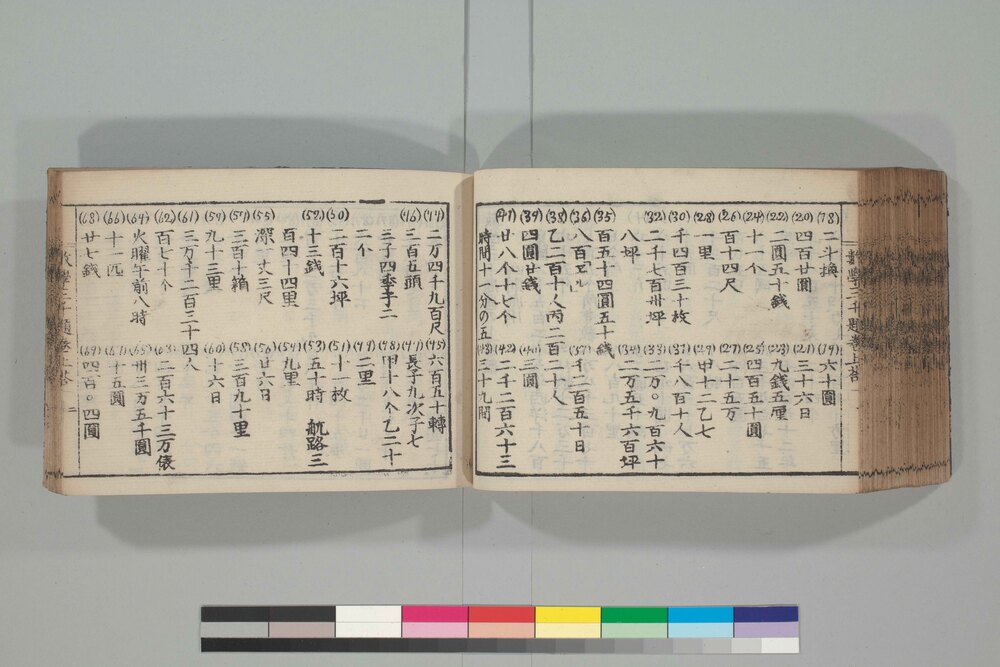 (18) 二斗換十四
(19) 六十圓
(20) 四百廿圓
(21) 三十六日
(22) 二圓五十錢
(23) 九錢五厘
(24) 十一个
(25) 四百五十圓
(26) 百十四尺
(27) 二十五万
(28) 一里
(29) 甲十二乙七
(30) 千四百三十枚
(31) 千八百十人
(32) 二千七百卅坪
(33) 二万〇九百六十八坪
(34) 二万五千六百坪
(35) 百五十四圓五十錢
(36) 八百
(37) 千二百五十日
乙二百十人丙二百二十人
(39) 四圓廿錢
(40) 三圓
(41) 廿八个十七个
(42) 二千二百六十三
時間十一分の五
(43) 三十九間
(44) 二万四千九百尺
(45) 六百五十轉
(46) 三百五頭
(47) 長子九次子七三子四季子二
(48) 甲十八个乙二十二个
(49) 二里
(50) 二百十六坪
(51) 十一枚
(52) 十三錢
(53) 五十時 航路三百四十四里
(54) 九里
(55) 深一丈三尺
(56) 廿六日
(57) 三百十箱
(58) 三百九十里
(59) 九十三里
(60) 十六日
(61) 三万千二百三十四人
(62) 百七十个
(63) 二百六十三万俵
(64) 火曜午前八時
(65) 卅三万五千圓
(66) 十一匹
(67) 十五圓
(68) 廿七錢
(69) 四百〇四圓